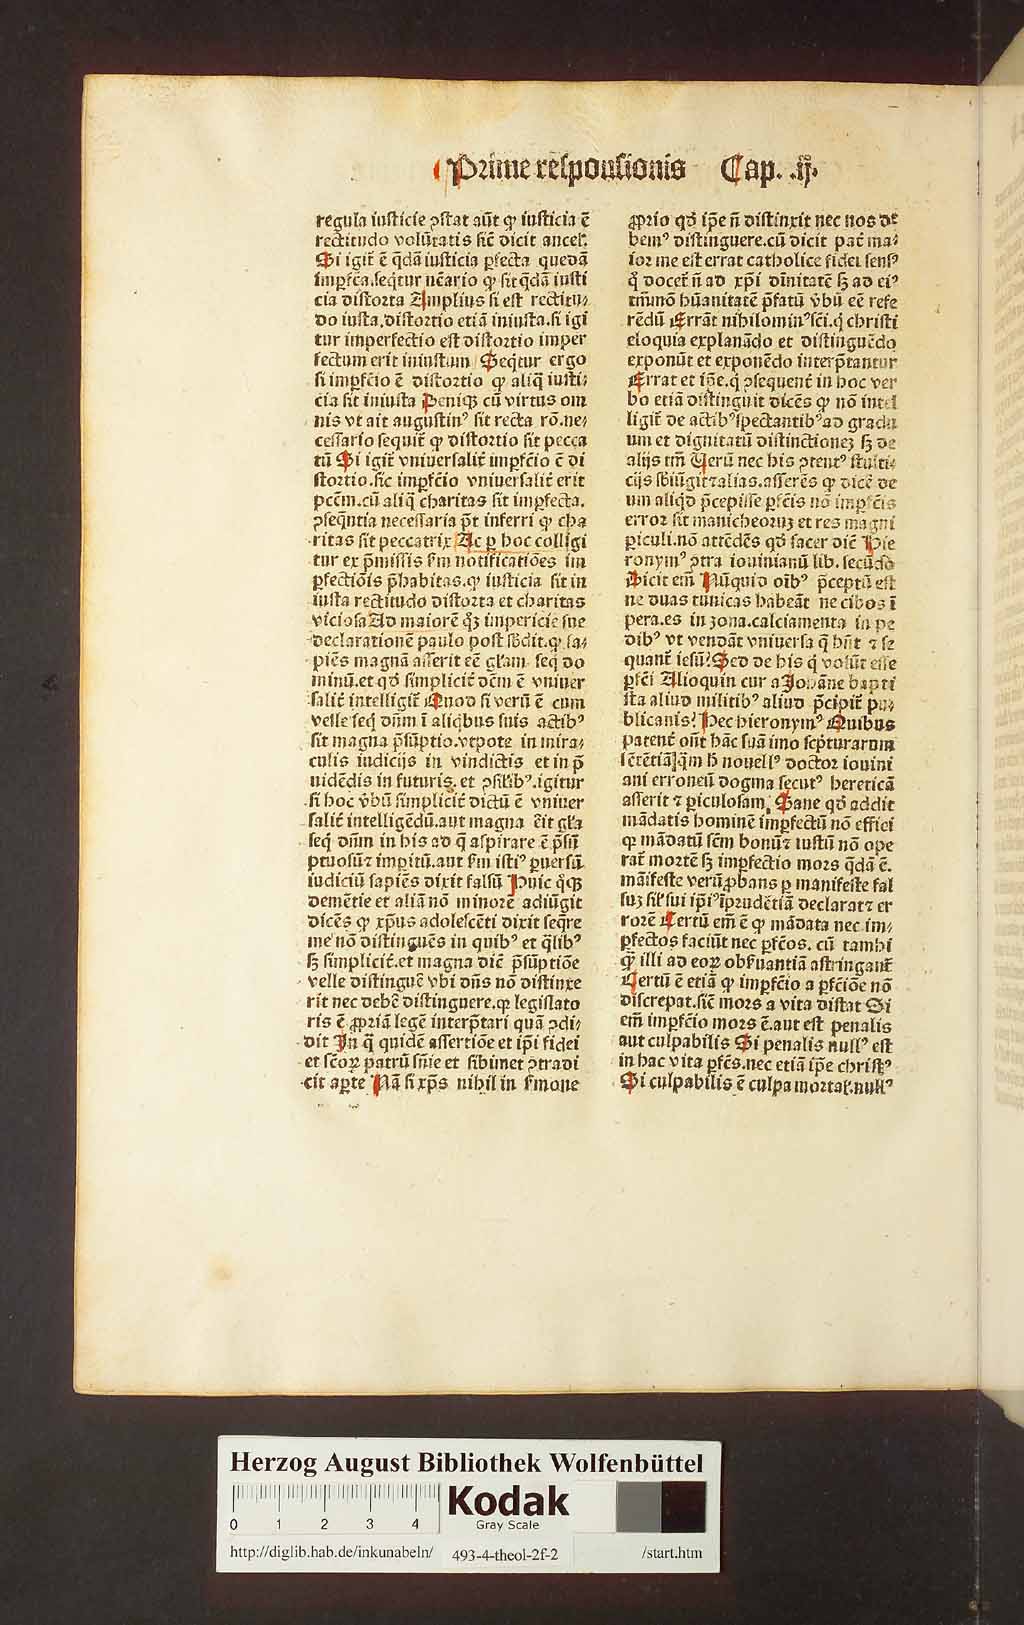 Prime responsionis Cap. .ij.
regula iusticie ꝯstat aūt ꝙ iusticia ē
rectitudo volūtatis sic̄ dicit ancel.
Si igit̄ ē q̄dā iusticia ꝑfecta quedā
imꝑfca.seq̄tur ncāio ꝙ sit q̄dā iusti
cia distorta Amplius si est rectitu⸗
do iusta.distortio etiā iniusta.si igi
tur imperfectio est distortio imper
fectum erit iniustum Seq̄tur ergo
si imꝑfcio ē distortio ꝙ aliq̄ iusti⸗
cia sit iniusta Deniqꝫ cū virtus om
nis vt ait augustinꝰ sit recta rō.ne⸗
cessario sequit̄ ꝙ distortio sit pecca
tū Si igit̄ vniuersalit̄ imꝑfcio ē di
stortio.sic imꝑfcio vniuersalit̄ erit
pcc̄m.cū aliq̄ charitas sit imꝑfecta.
ꝯseq̄ntia necessaria p̄t inferri ꝙ cha
ritas sit peccatrix Ac ꝑ hoc colligi
tur ex p̄missis ẜm notificatiōes im
ꝑfectiōis p̄habitas.ꝙ iusticia sit in
iusta rectitudo distorta et charitas
viciosa Ad maiorē qꝫ impericie sue
declarationē paulo post sb̄dit.ꝙ sa⸗
piēs magnā asserit eē gl̄am seq̄ do
minū.et qd̄ simplicit̄ dc̄m ē vniuer
salit̄ intelligit̄ Quod si verū ē cum
velle seq̄ dn̄m ī aliq̄bus suis actibꝰ
sit magna p̄sūptio.vtpote in mira⸗
culis iudicijs in vindictis et in p̄
uidēdis in futuris.et ꝯsil̄ibꝰ.igitur
si hoc vb̄ū simplicit̄ dictū ē vniuer
salit̄ intelligēdū.aut magna erit gl̄a
seq̄ dn̄m in his ad q̄ aspirare ē p̄sū
ptuosū ⁊ impiū.aut ẜm istiꝰ ꝑuersū
iudiciū sapiēs dixit falsū Huic qͦqꝫ
demētie et aliā nō minorē adiūgit
dicēs ꝙ xp̄us adolescēti dixit seq̄re
me nō distinguēs in quibꝰ et q̄libꝰ
sꝫ simplicit̄.et magna dic̄ p̄sūptiōe
velle distinguē vbi dn̄s nō distinxe
rit nec debē distinguere.qꝛ legislato
ris ē ꝓpriā legē interp̄tari quā ꝯdi⸗
dit In q̄ quidē assertiōe et ip̄i fidei
et sc̄oꝝ patrū sn̄ie et sibimet ꝯtradi
cit aꝑte Nā si xp̄s nihil in ẜmone
ꝓprio qd̄ ip̄e n̄ distinxit nec nos de
bemꝰ distinguere.cū dicit pat̄ ma⸗
ior me est errat catholice fidei sensꝰ
q̄ docet̄ n̄ ad xp̄i diuinitatē sꝫ ad eiꝰ
tm̄mō hūanitatē p̄fatū vb̄ū eē refe
rēdū Errāt nihilominꝰ sci.q̄ christi
eloquia explanādo et distinguēdo
exponūt et exponēdo interp̄tantur
Errat et ip̄e.q̄ ꝯsequent̄ in hoc ver
bo etiā distinguit dicēs ꝙ nō intel
ligit̄ de actibꝰ spectantibꝰ ad gradū
um et dignitatū distinctionez sꝫ de
alijs tm̄ Verū nec his ꝯtentꝰ stulti⸗
cijs sbiūgit ⁊ alias.asserēs ꝙ dicē de
um aliqd̄ p̄cepisse ꝑfcis nō imꝑfcis
error sit manicheoruꝫ et res magni
ꝑiculi.nō attēdēs qd̄ sacer dic̄ Hie
ronymꝰ ꝯtra iouinianū lib. secūdo
Dicit em̄ Nūquid oībꝰ p̄ceptū est
ne duas tunicas habeāt ne cibos ī
pera.es in zona.calciamenta in pe
dibꝰ vt vendāt vniuersa q̄ hn̄t ⁊ se
quant̄ iesū? Sed de his q̄ volūt esse
ꝑfci Alioquin cur a Johāne bapti
sta aliud militibꝰ aliud p̄cipit̄ pu⸗
blicanis? Hec hieronymꝰ Quibus
patent̄ on̄t hāc suā imo scpturarum
sētētiā q̄m h nouellꝰ doctor iouini
ani erroneū dogma secutꝰ hereticā
asserit ⁊ ꝑiculosam. Sane qd̄ addit
mādatis hominē imꝑfectū nō effici
ꝙ mādatū scm bonū ⁊ iustū nō ope
rat̄ mortē sꝫ imꝑfectio mors q̄dā ē.
māifeste verū ꝓbans ꝑ manifeste fal
suꝫ sil̄ sui ip̄iꝰ īprudētiā declarat ⁊ er
rorē Certū em̄ ē ꝙ mādata nec im⸗
ꝑfectos faciūt nec ꝑfcos. cū tam hi
ꝙ̄ illi ad eoꝝ obẜuantiā astringant̄
Certū ē etiā ꝙ imꝑfcio a ꝑfciōe nō
discrepat.sic̄ mors a vita distat Si
em̄ imꝑfcio mors ē.aut est penalis
aut culpabilis Si penalis nullꝰ est
in hac vita ꝑfcs.nec etiā ip̄e christꝰ
Si culpabilis ē culpa mortal̄.nullꝰ
Herzog August Bibliothek Wolfenbüttel
0 1 2 3 4
Kodak
Gray Scale
http://diglib.hab.de/inkunabeln/ 493-4-theol-2f-2 /start.htm